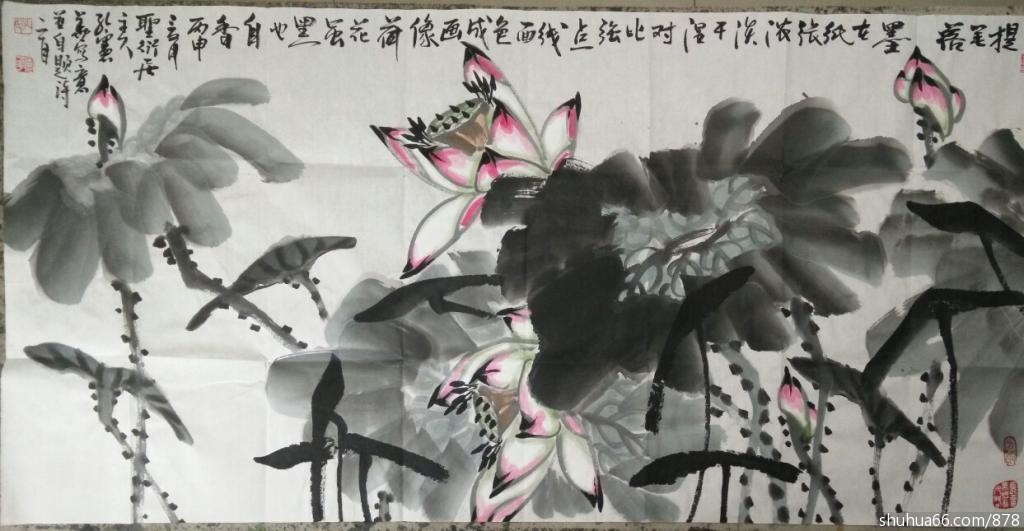 提笔落墨在纸张浓淡干湿对比强点线面色成画像荷花虽黑也自香
丙申
三月
聖衍居
主人
弘
写意
并自题诗
二月
shuhua66.com/878